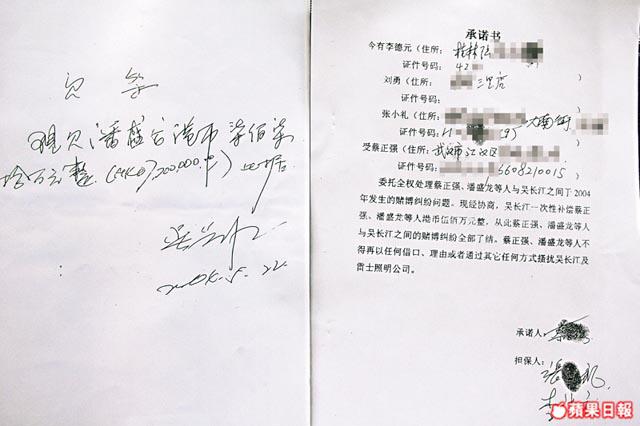 欠 条
现欠潘盛龙港币柒佰柒
拾万元整
2005.5.22
承诺书
今有李德元(住所：桂林路
证件号码：42
刘勇(住所： 三里店 )
证件号码： )
张小礼(住所：
证件号码：
受蔡正强(住所：武汉市江汉区
5608210015
委托全权处理蔡正强、潘盛龙等人与吴长江之间于2004
年发生的赌博纠纷问题。现经协商，吴长江一次性补偿蔡正
强、潘盛龙等人港币伍佰万元整，从此蔡正强、潘盛龙等人
与吴长江之间的赌博纠纷全部了结。蔡正强、潘盛龙等人不
得再以任何借口、理由或者通过其它任何方式骚扰吴长江及
雷士照明公司。
承诺人：
担保人：
蘋果日報